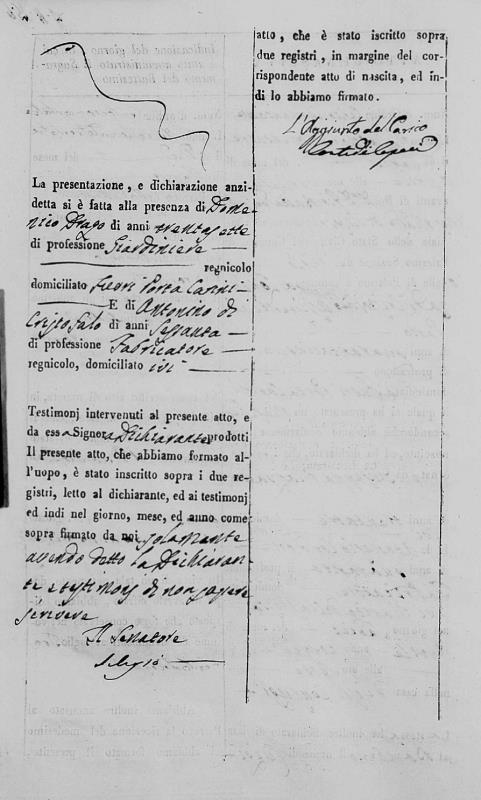 La presentazione, e dichiarazione anzi-
detta si è fatta alla presenza di Dome
nico Drago di anni trentasette
di professione Giardiniere
regnicolo
domiciliato fuori Porta Carini
E di Antonino di
Cristofalo di anni Sessanta
di professione Fabricatore
regnicolo, domiciliato ivi
Testimonj intervenuti al presente atto, e
da essa Signora Dichiarante prodotti
Il presente atto, che abbiamo formato al-
l'uopo, è stato inscritto sopra i due re-
gistri, letto al dichiarante, ed ai testimonj
ed indi nel giorno, mese, ed anno come
sopra firmato da noi solamente
avendo detto la Dichiaran
te e testimonj di non sapere
scrivere
Il Senatore
atto, che è stato iscritto sopra
due registri, in margine del cor-
rispondente atto di nascita, ed in-
di lo abbiamo firmato.
L'Aggiunto del Carico